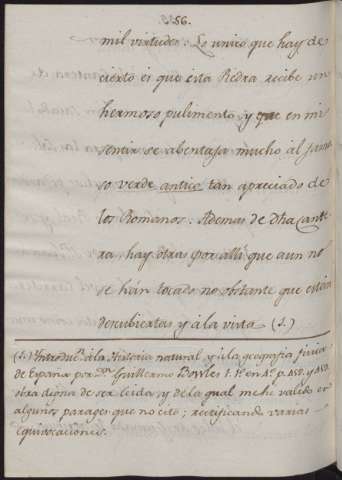 56.
mil virtudes. Lo unico que hay de
cierto es que esta Piedra recibe un
hermoso pulimento, y que en mi
sentir se abentaja mucho al famo
so verde antico tan apreciado de
los Romanos. Ademas de Dha Cante
ra, hay otras por alli que aun no
se hán tocado no obstante que estén
descubiertas y á la vista (1.)
(1.) Introducn. á la Historia natural y á la geografia fisica
de España por Dn. Guillermo Bowles
obra digna de ser leida, y de la qual me he valido en
algunos parages que no cito; rectificando varias
equivocaciones.